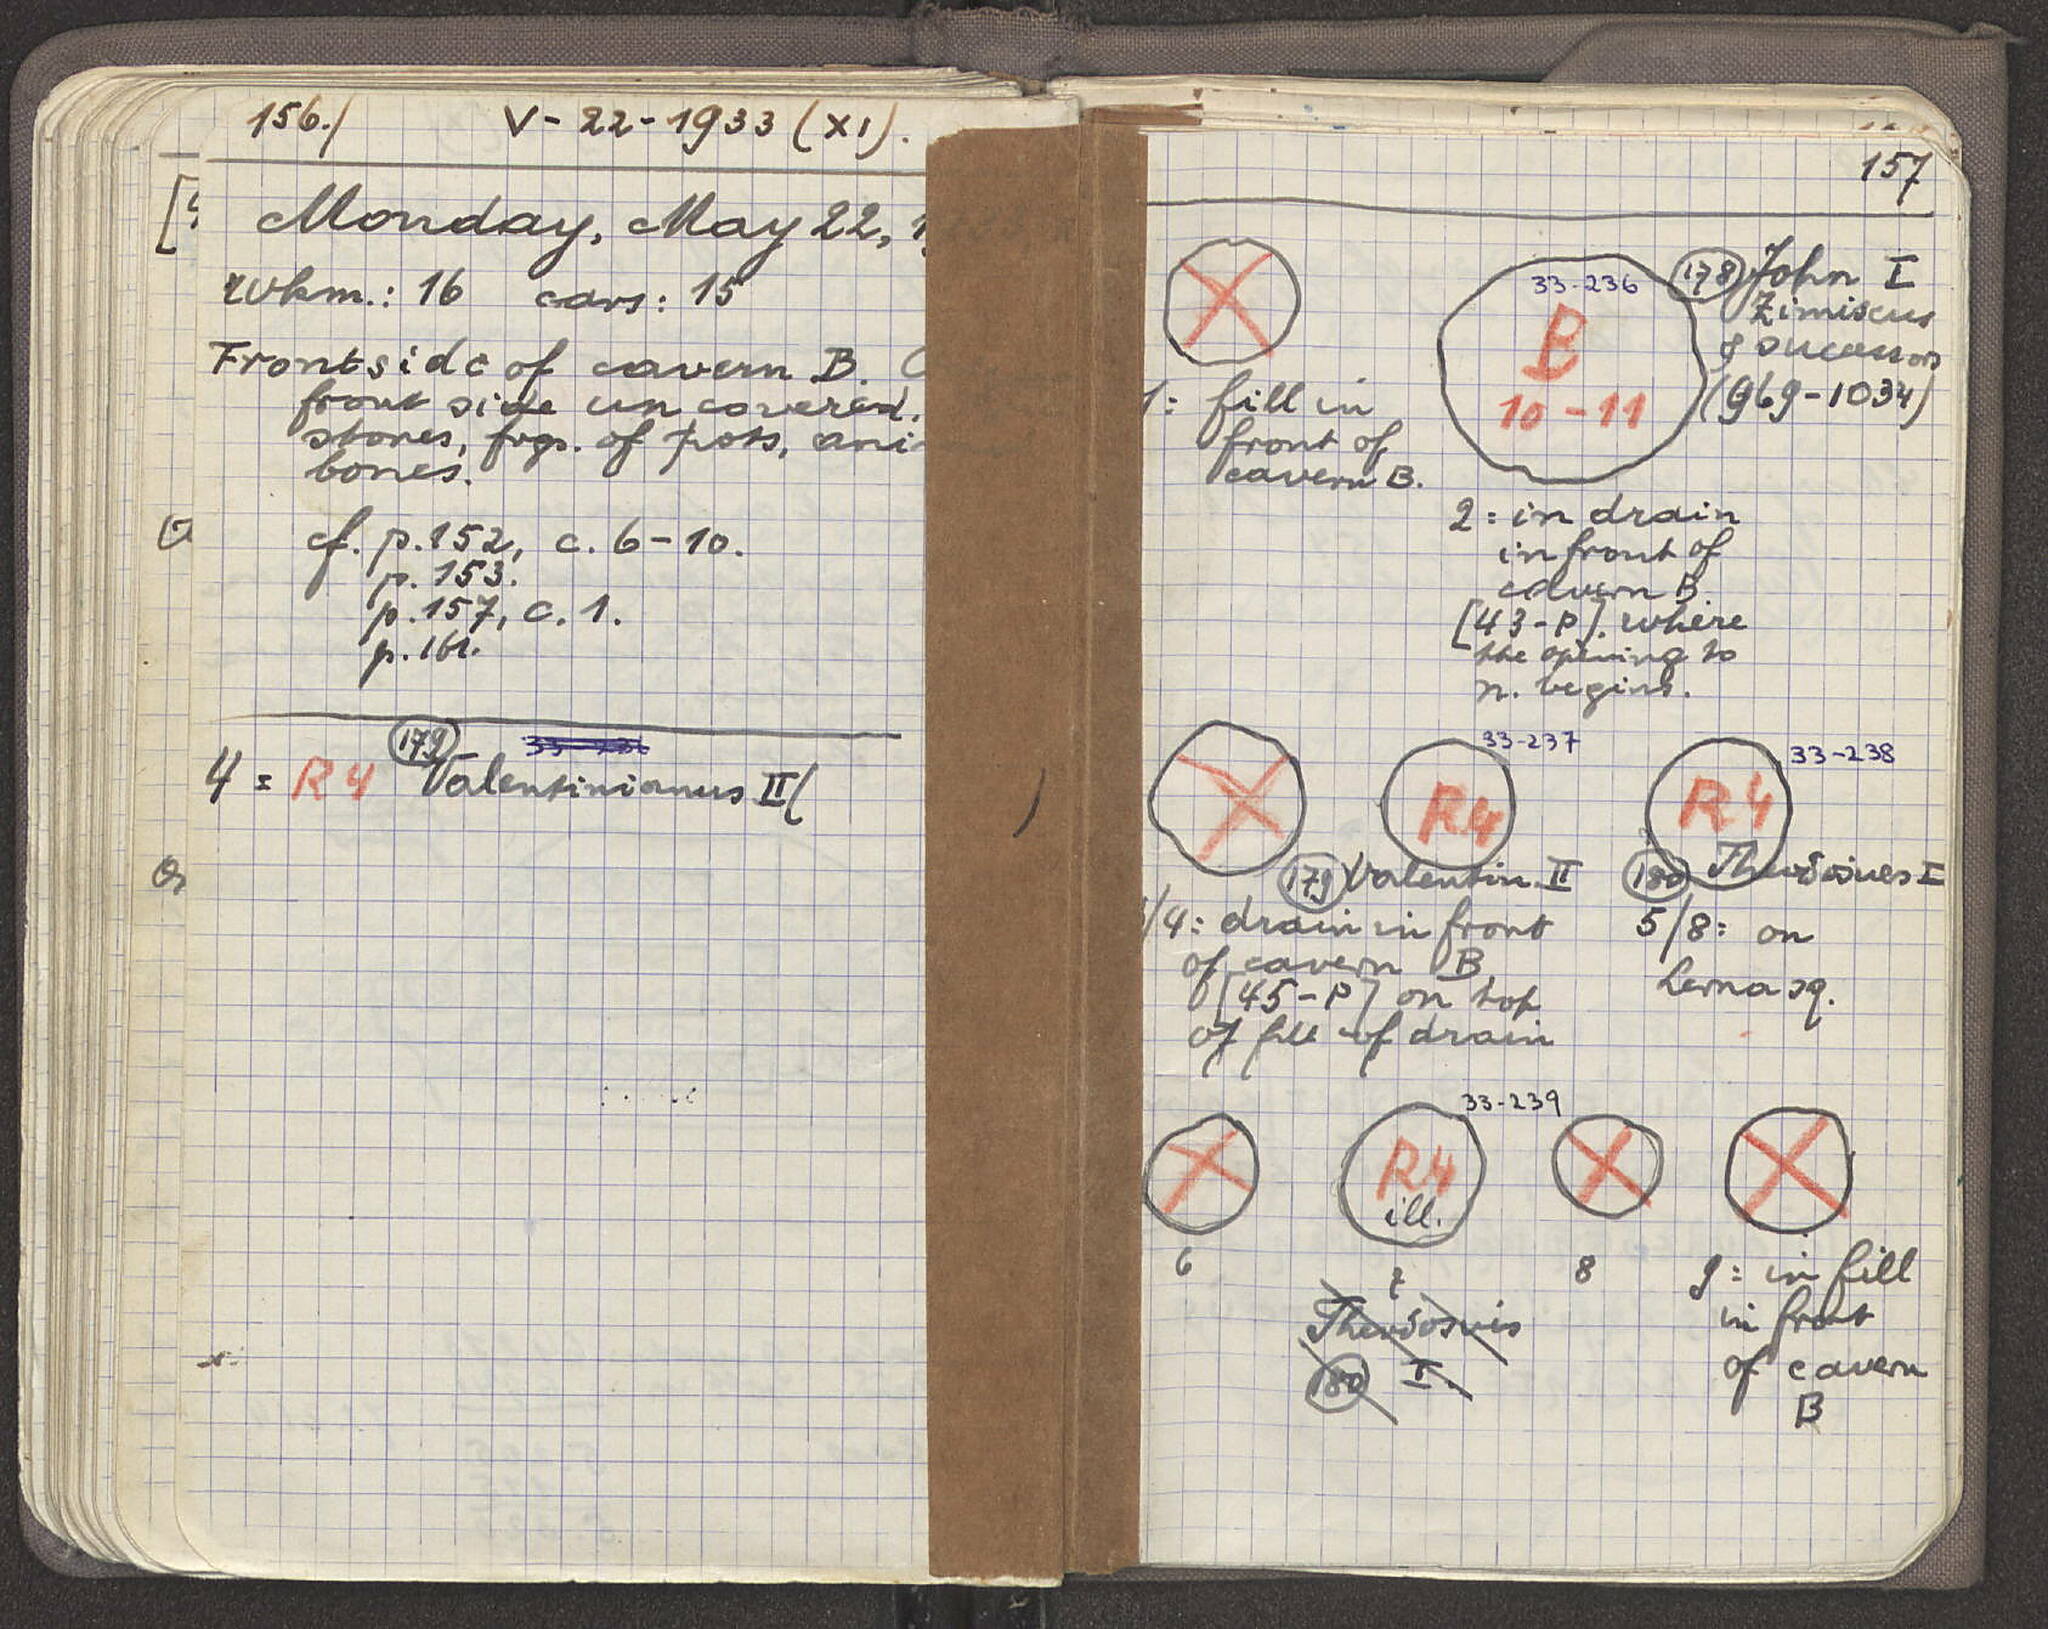 156./ V-22-1933 (XI).
Monday, May 22, 1
wkm.: 16 cars: 15
Frontside of cavern B.
front side uncovered.
stones, frgs. of pots, ani
bones.
cf. p. 152, c. 6-10.
p. 153.
p. 157, c. 1.
p. 161.
4 = R4 (179) Valentinianus II (
157
33-236
B
10-11
(178) John I
Zimiscus
& successors
(969-1034)
1: fill in
front of
cavern B.
2: in drain
in front of
cavern B.
[43-P]. where
the opening to
n. begins.
33-237
R4
33-238
R4
(179) Valentin. II
(180) Theodosius I
/4: drain in front
of cavern B
[45-P] on top
of fill of drain
5/8: on
Lerna sq.
33-239
R4
ill.
6
7
8
9: in fill
in front
of cavern
B
Theodosius
(180) I.